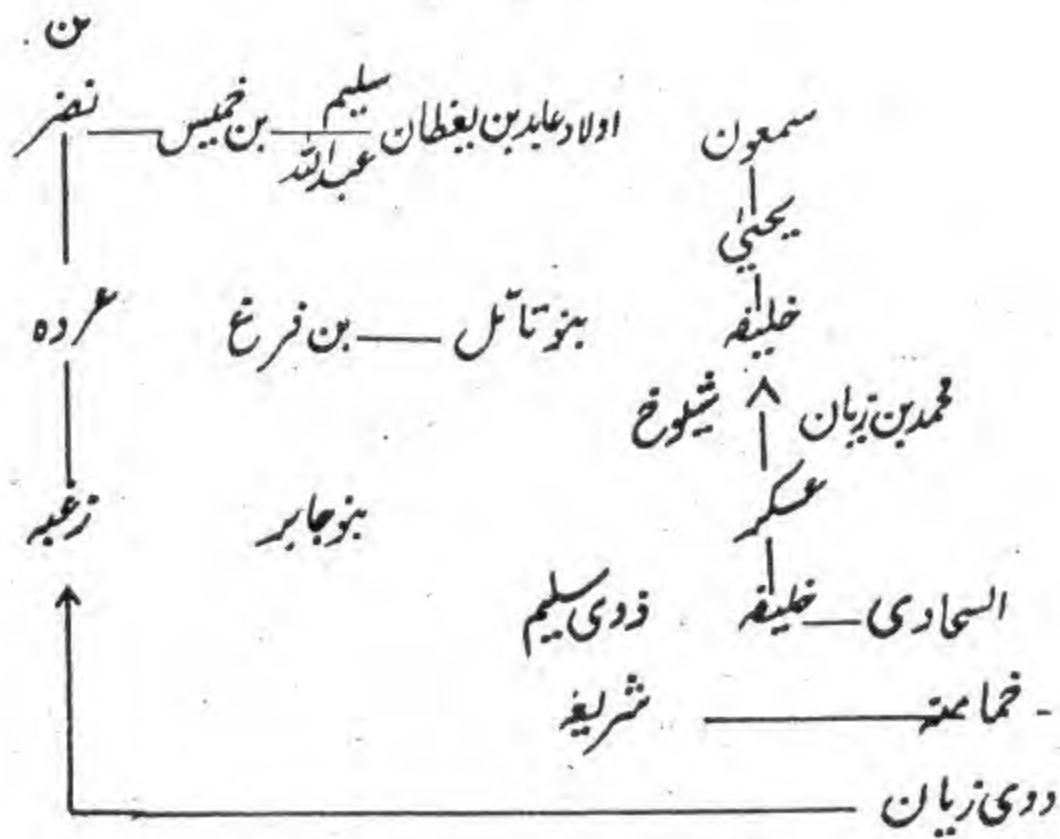 بن
سمعون اولاد عابد بن یغطان سلیم عبداللہ بن خمیس نضر
یحییٰ
خلیفہ بنو تائل بن فرغ عرده
محمد بن زیان شیلوخ
عسکر بنو جابر زغبہ
السحاری خلیفہ ذوی سلیم
- خمامسته شریفہ
ذوی زیان